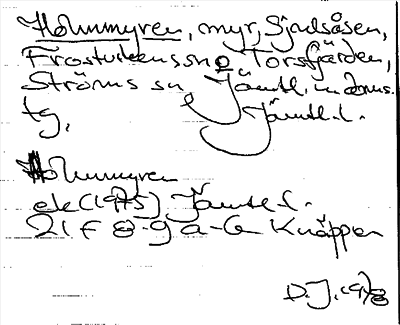 Holmmyren, myr, Sjulsåsen,
Frostvikens sn o Torsfjärden,
Ströms sn, Jämtl. n. doms.
tg, Jämtl. l.
Holmmyren
ek (1975) Jämtl. l.
21 F 8-9 a-b Knäppen
D.J. 1978